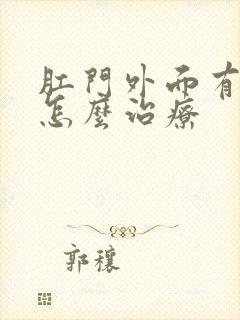 肛門外面有
怎麼治療
郭穰